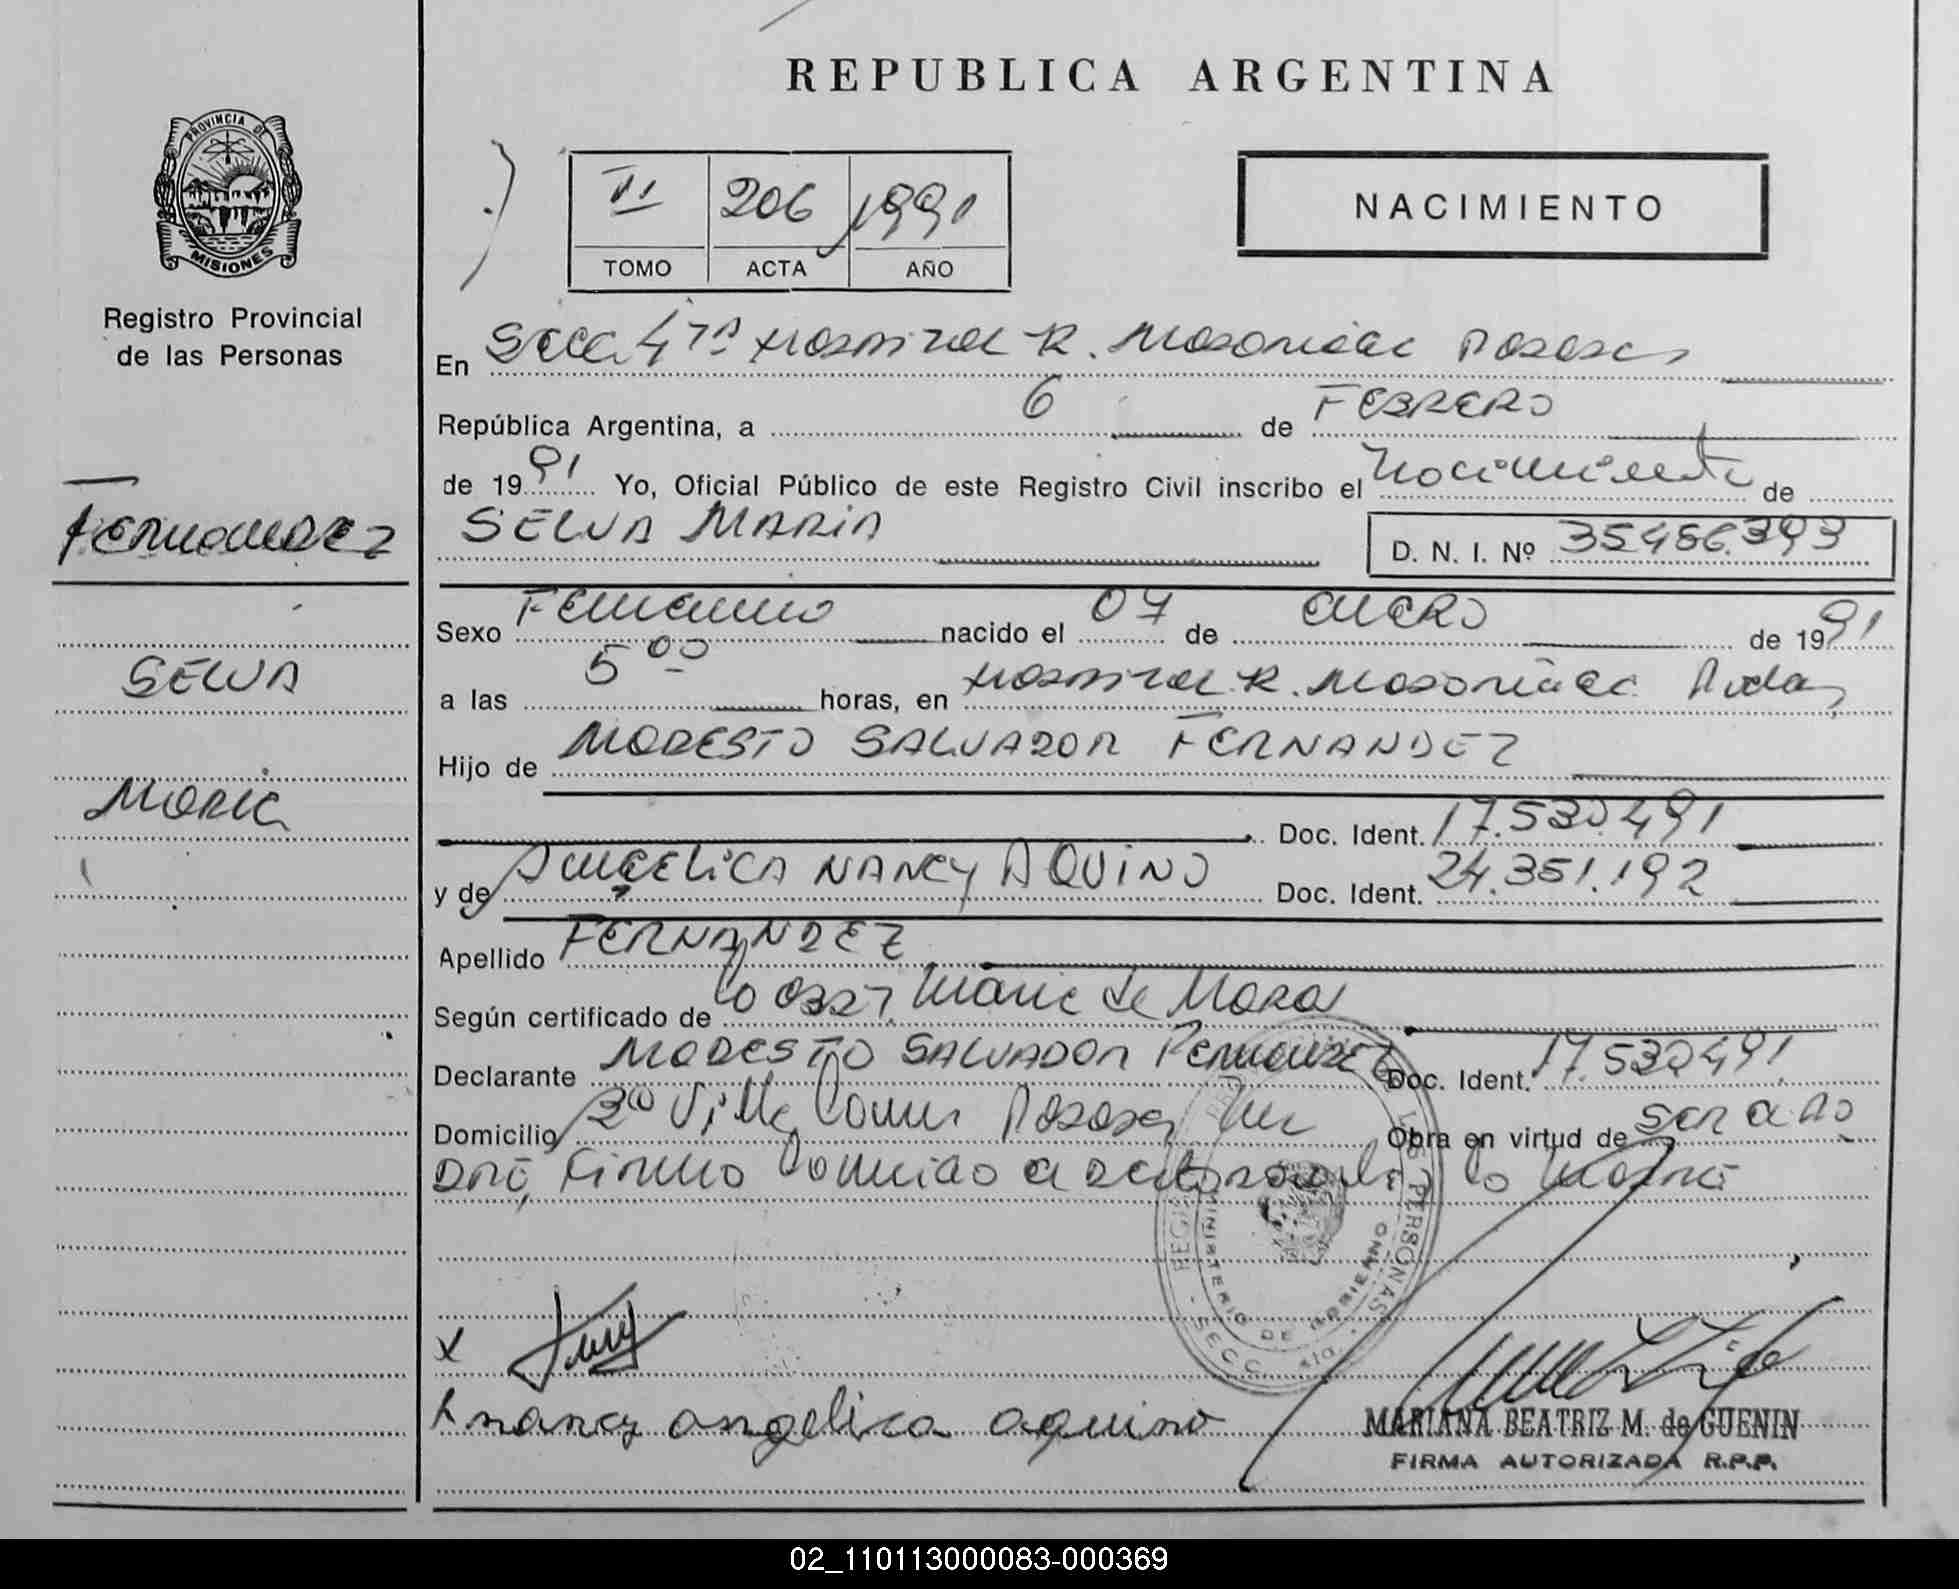 REPUBLICA ARGENTINA
PROVINCIA DE
MISIONES
Registro Provincial
de las Personas
VI 206 1991
TOMO ACTA AÑO
NACIMIENTO
En Secc. 4ta Hospital R. Madariaga Posadas
República Argentina, a 6 de FEBRERO
de 1991 Yo, Oficial Público de este Registro Civil inscribo el nacimiento de
SELVA MARIA
D. N. I. Nº 35.486.393
Fernandez
SELVA
Maria
Sexo Femenino nacido el 07 de enero de 1991
a las 5 00 horas, en Hospital R. Madariaga Posadas
Hijo de MODESTO SALVADOR FERNANDEZ
Doc. Ident. 17.530.491
y de ANGELICA NANCY AQUINO Doc. Ident. 24.351.192
Apellido FERNANDEZ
Según certificado de Maria de Mora
Declarante MODESTO SALVADOR Fernandez Doc. Ident. 17.530491
Domicilio Villa Posadas Obra en virtud de ser
Firma la Madre
REGISTRO DE LAS PERSONAS
MINISTERIO DE GOBIERNO
SECC. 4ta.
X
nancy angelica aquino
MARIANA BEATRIZ M. de GUENIN
FIRMA AUTORIZADA R.P.P.
02_110113000083-000369